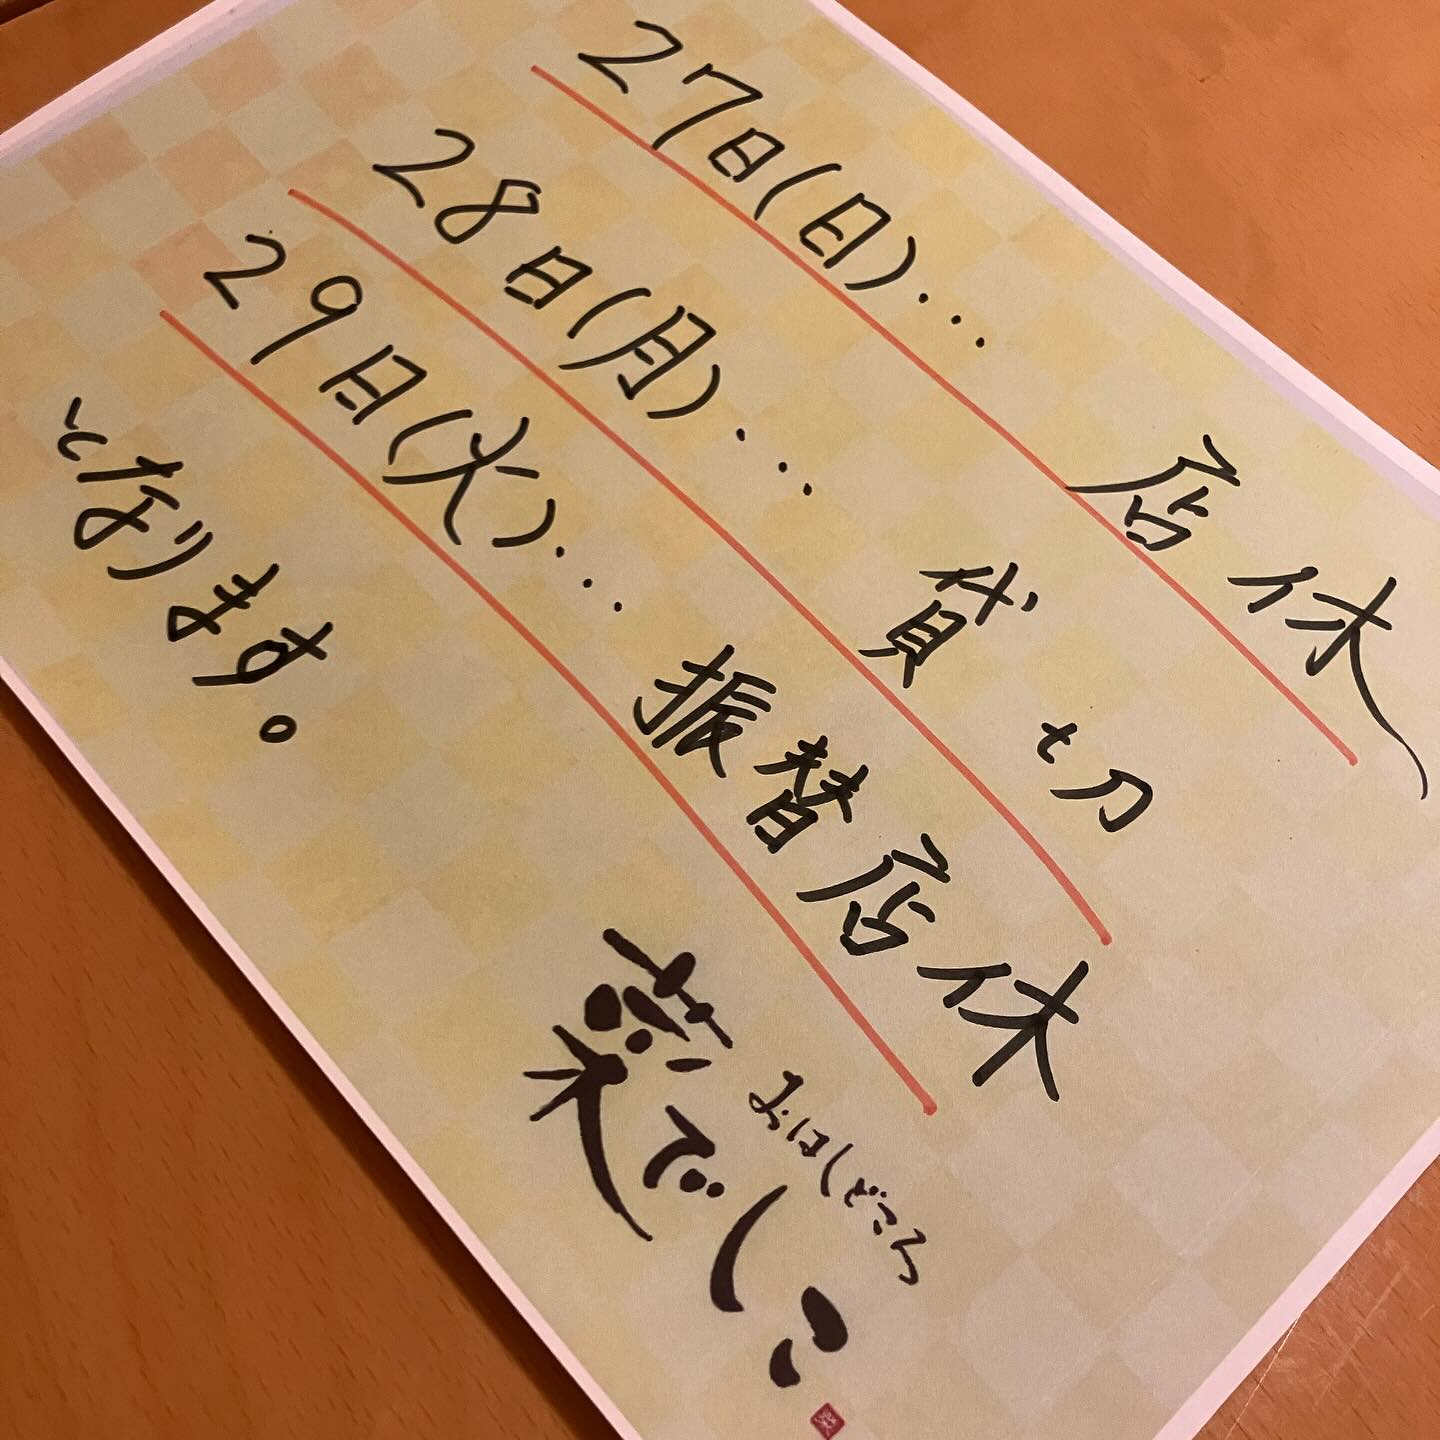 27日(日)… 店休
28日(月)… 貸切
29日(火)… 振替店休
となります。
おはしどころ
菜でしこ